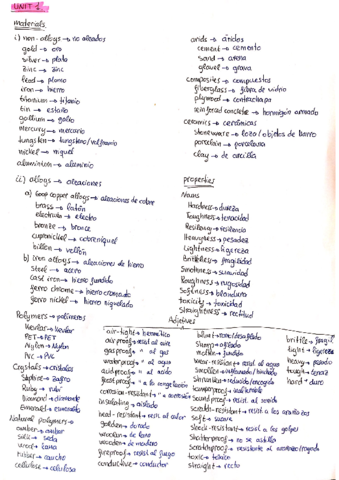 UNIT 1
materials
i) non-alloys → no aleados
gold → oro
silver → plata
zinc → zinc
lead → plomo
iron → hierro
titanium → titanio
tin → estaño
gallium → galio
mercury → mercurio
tungsten → tungsteno/volframio
nickel → níquel
aluminium → aluminio
ii) alloys → aleaciones
a) copper alloys → aleaciones de cobre
brass → latón
bronze → bronce
cupronickel → cobreniquel
billon → vellón
b) iron alloys → aleaciones de hierro
steel → acero
cast iron → hierro fundido
ferro chrome → hierro cromado
ferro nickel → hierro niquelado
Polymers → polímeros
Kevlar → kevlar
PET → PET
Nylon → Nylon
PVC → PVC
Crystals → cristales
Ruby → rubí
Diamond → diamante
Emerald → esmeralda
Natural polymers →
amber → ambar
silk → seda
wool → lana
rubber → caucho
cellulose → celulosa
acids → ácidos
cement → cemento
sand → arena
gravel → grava
composites → compuestos
fiberglass → fibra de vidrio
plywood → contrachapa
reinforced concrete → hormigón armado
ceramics → cerámicas
stoneware → loza/objetos de barro
porcelain → porcelana
clay → de arcilla
properties
Nouns
Hardness → dureza
Toughness → tenacidad
Resiliency → resiliencia
Heavyness → pesadez
Lightness → ligereza
Brittleness → fragilidad
Smoothness → suavidad
Roughness → rugosidad
Softness → blandura
toxicity → toxicidad
Straightness → rectitud
Adjetives
air-tight → hermético
air proof → resist al aire
gas proof → " al gas
water proof → " al agua
acid proof → " al acido
frost proof → " a la congelación
corrosion-resistant → " a corrosión
insulating → aislado
heat-resistant → resist. al calor
golden → dorado
woollen → de lana
wooden → de madera
fireproof → resist al fuego
conductive → conductor
sound proof → resist. al sonido
scratch-resistant →
soft → suave
shock-resistant → resist a los golpes
shatterproof → no se astilla
toxic → tóxico
straight → recto
brittle → frágil
light → ligereza
heavy → pesado
tough → tenaz
hard → duro